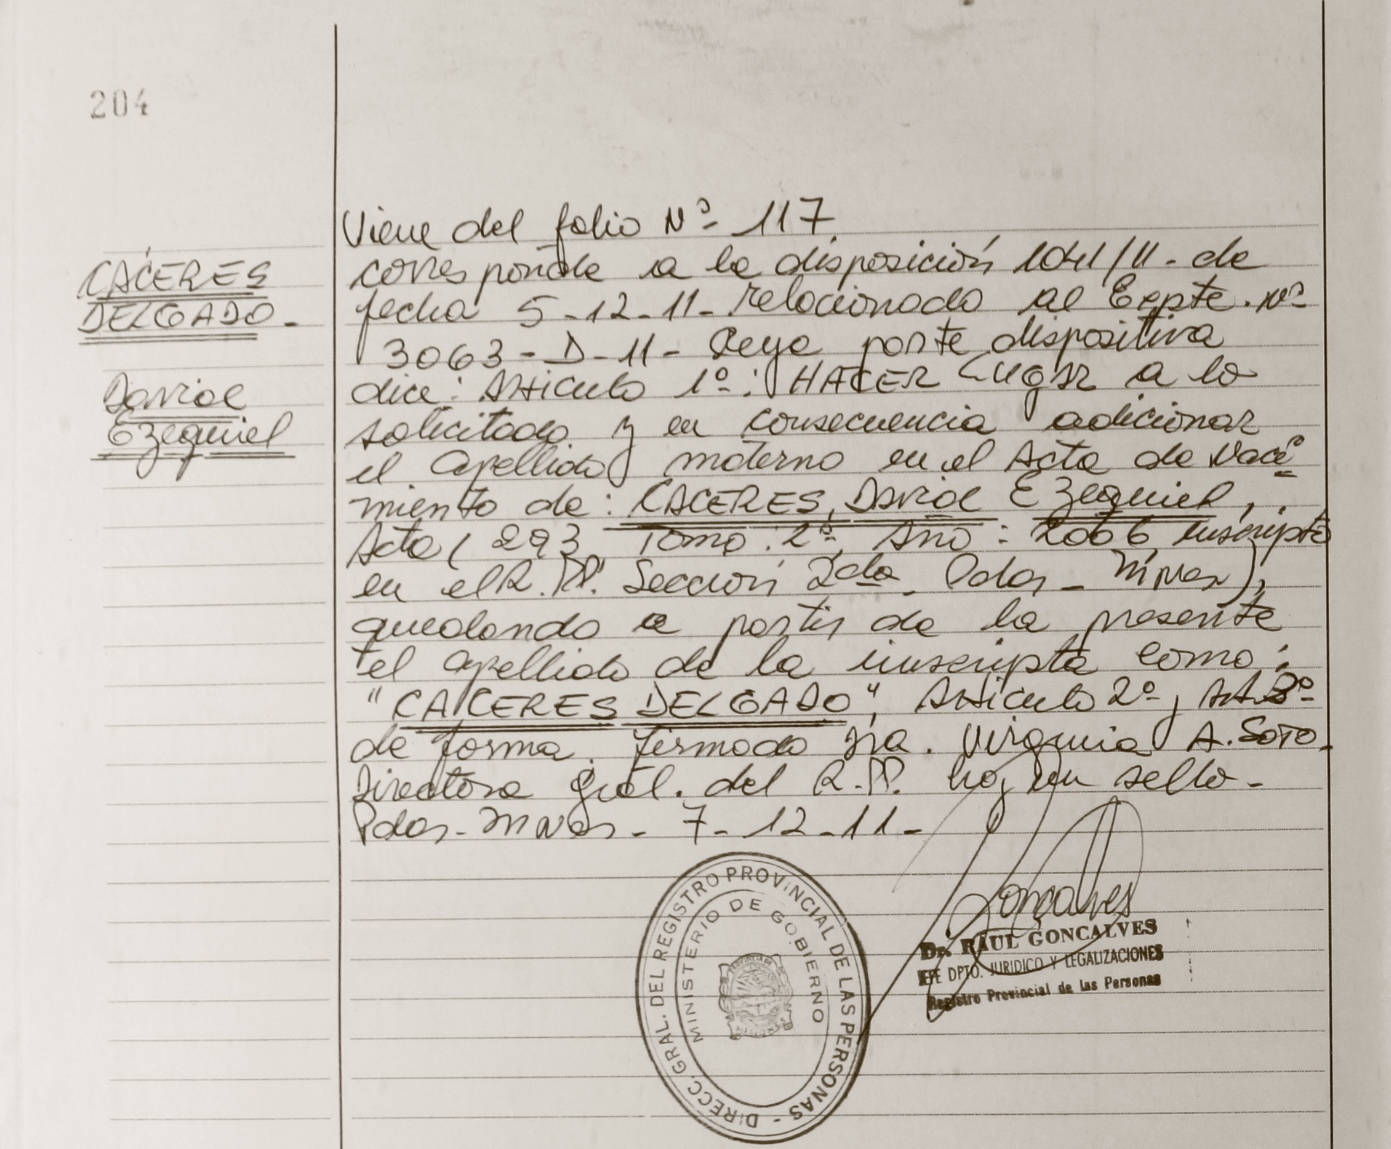 204
Viene del folio Nº 117
CACERES
DELGADO.
David
Ezequiel
corresponde a la disposición 1041/11 - de
fecha 5-12-11- relocionado al Expte. Nº
3063-D-11- Cuya parte dispositiva
dice: Articulo 1º: HACER Lugar a lo
solicitado y en consecuencia adicionar
el apellido materno en el Acta de Naci=
miento de: CACERES, David Ezequiel,
Acta ( 293, Tomo: 2º, Año: 2006 inscripto
en el R.PP. Sección 2da. Pdas - Mnes),
quedando a partir de la presente
el apellido de la inscripta como:
"CACERES DELGADO", Articulo 2º, Art 3º
de forma. firmado Sra. Virginia A. Soto.
Directora Gral. del R.PP. hay un sello-
Pdas- Mnes- 7-12-11-
DIRECC. GRAL. DEL REGISTRO PROVINCIAL DE LAS PERSONAS -
MINISTERIO DE GOBIERNO
Gonçalves
Dr. RAUL GONCALVES
EFE DPTO. JURIDICO Y LEGALIZACIONES
Registro Provincial de las Personas